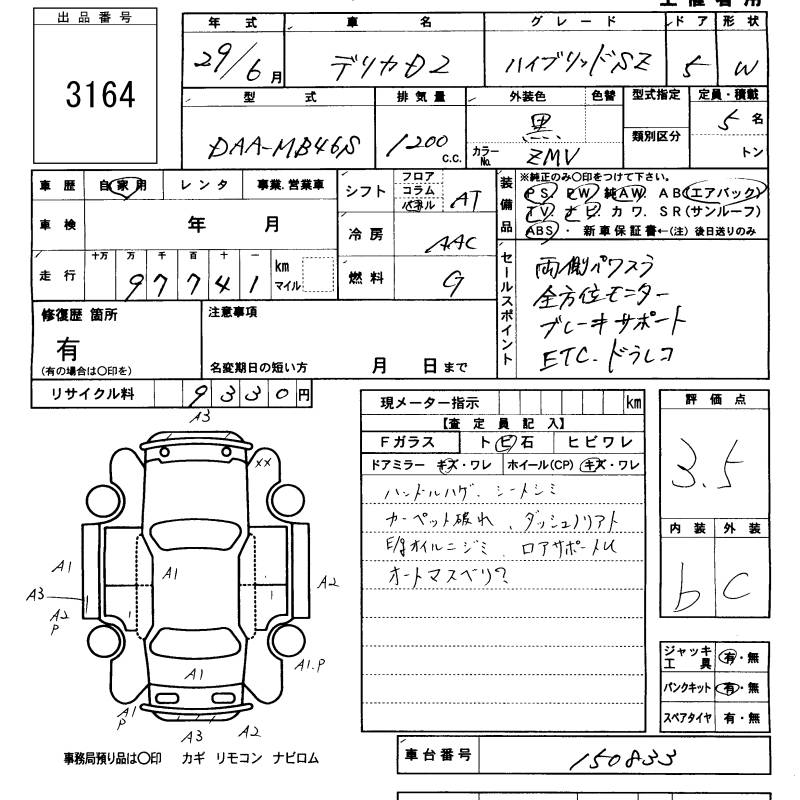 出品番号
3164
年式 車名 グレード ドア 形状
29/6月 デリカD2 ハイブリッドSZ 5 W
型式 排気量 外装色 色替 型式指定 定員・積載
DAA-MB46S 1200 c.c. 黒 類別区分 5名
カラーNo. ZMV トン
車歴 自家用 レンタ 事業.営業車
車検 年 月
走行 十万 万 千 百 十 一
97741 km マイル
シフト フロア コラム パネル AT
冷房 AAC
燃料 G
装備品
※純正のみ〇印をつけて下さい。
PS. PW 純AW. AB(エアバック)
TV. ナビ. カワ. SR(サンルーフ)
ABS・ 新車保証書←(注) 後日送りのみ
セールスポイント
両側パワスラ
全方位モニター
ブレーキサポート
ETC. ドラレコ
修復歴 箇所 注意事項
有
(有の場合は〇印を) 名変期日の短い方 月 日まで
リサイクル料 9330円
現メーター指示 km
【査定員記入】
Fガラス トビ石 ヒビワレ
ドアミラー キズ・ワレ ホイール(CP) キズ・ワレ
ハンドルハゲ、シートシミ
カーペット破れ、ダッシュノリアト
E/gオイルニジミ、ロアサポート
オートマスベリ?
評価点
3.5
内装 外装
b C
ジャッキ工具 有・無
パンクキット 有・無
スペアタイヤ 有・無
車台番号 150833
A3
XX
A1
A1
A3
A2
P
A2
A1
A1.P
A1
P
A3
A2
事務局預り品は〇印 カギ リモコン ナビロム